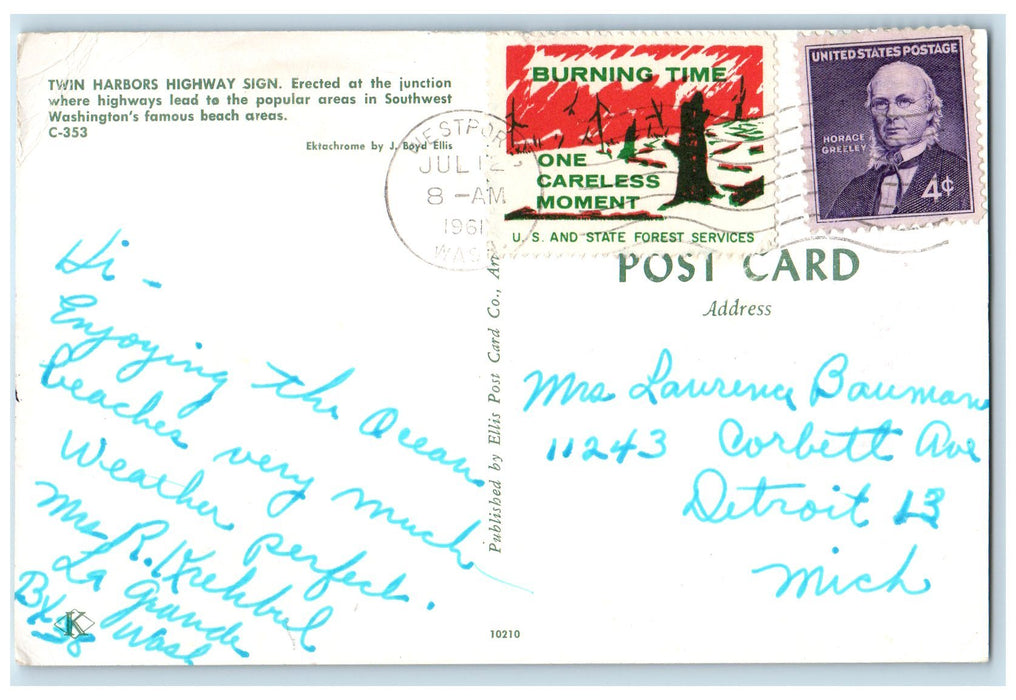 TWIN HARBORS HIGHWAY SIGN. Erected at the junction
where highways lead to the popular areas in Southwest
Washington's famous beach areas.
C-353
Ektachrome by J. Boyd Ellis
WESTPORT
JUL 12
8 -AM
1961
WASH
BURNING TIME
ONE
CARELESS
MOMENT
U. S. AND STATE FOREST SERVICES
UNITED STATES POSTAGE
HORACE
GREELEY
4¢
POST CARD
Address
Hi -
Enjoying the Ocean
beaches very much
Weather perfect.
Mrs R. Krehbiel
La Grande
Wash
Bx 38
K
Published by Ellis Post Card Co., Ar
Mrs Lawrence Bauman
11243 Corbett Ave
Detroit 13
Mich
10210